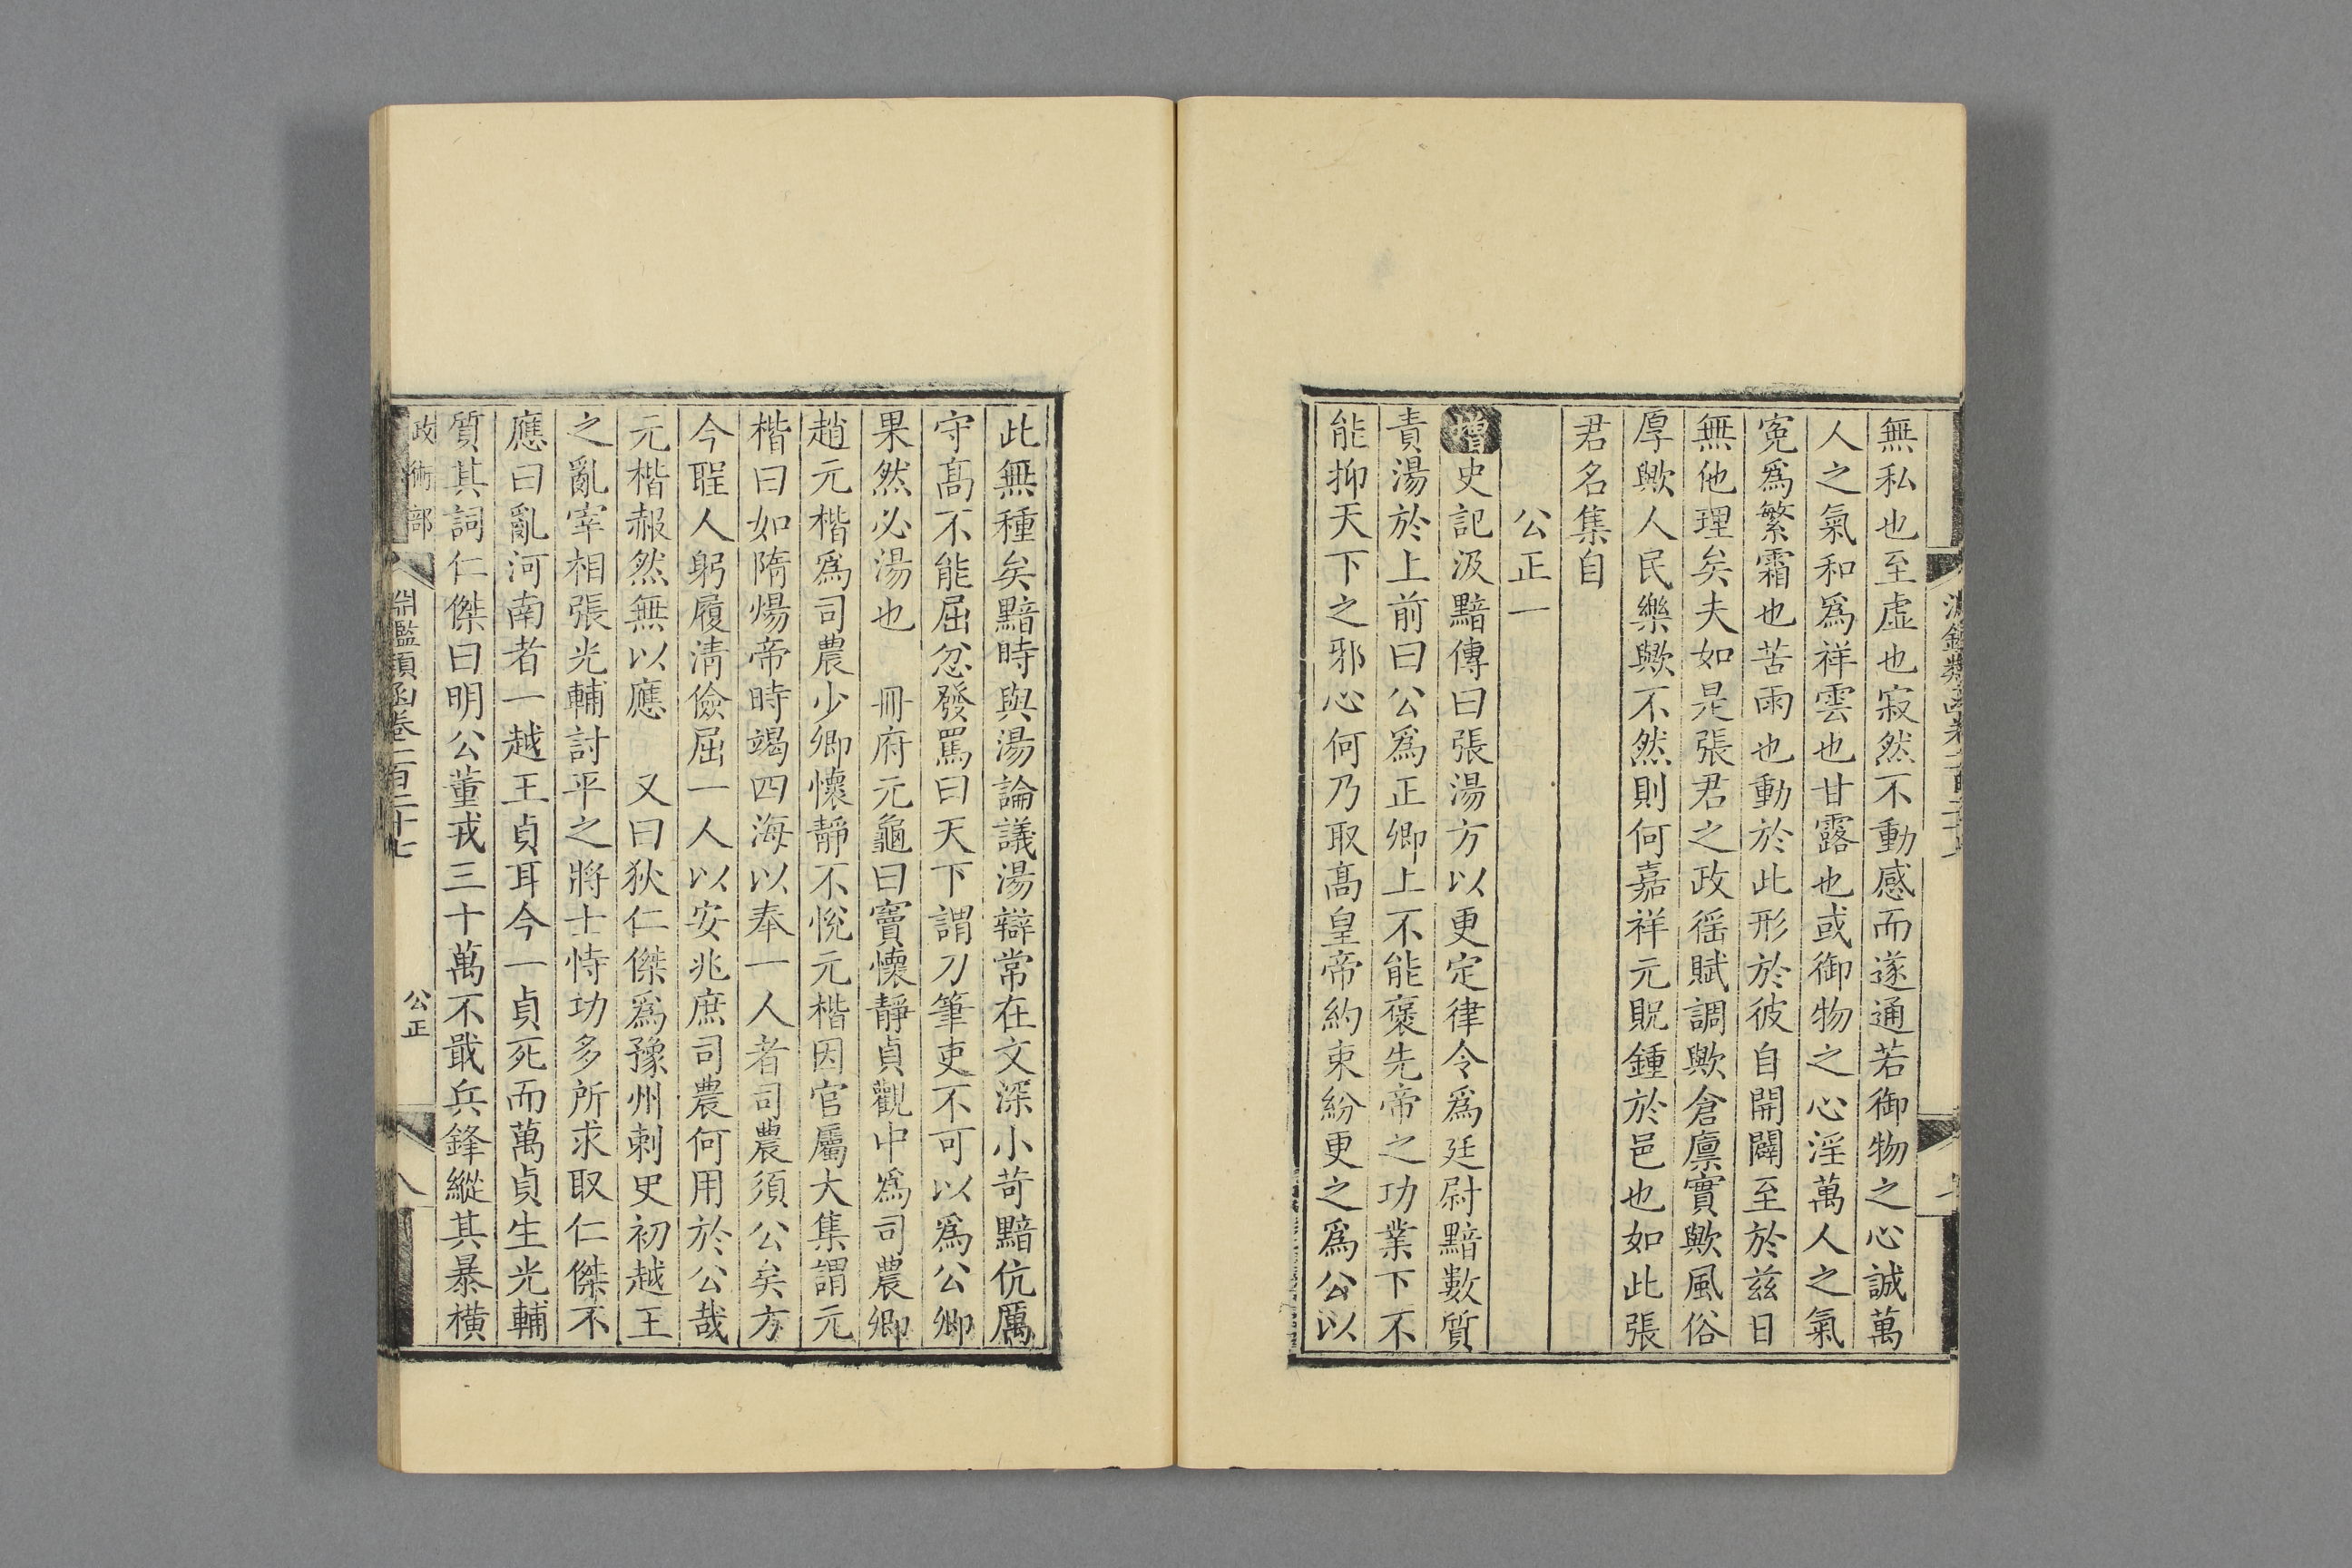 無私也至虛也寂然不動感而遂通若御物之心誠萬
人之氣和爲祥雲也甘露也或御物之心淫萬人之氣
寃爲繁霜也苦雨也動於此形於彼自開闢至於兹日
無他理矣夫如是張君之政徭賦調歟倉廩實歟風俗
厚歟人民樂歟不然則何嘉祥元貺鍾於邑也如此張
君名集自
公正一
增史記汲黯傳曰張湯方以更定律令爲廷尉黯數質
責湯於上前曰公爲正卿上不能襃先帝之功業下不
能抑天下之邪心何乃取髙皇帝約束紛更之爲公以
此無種矣黯時與湯論議湯辯常在文深小苛黯伉厲
守髙不能屈忿發罵曰天下謂刀筆吏不可以爲公卿
果然必湯也　冊府元龜曰竇懷靜貞觀中爲司農卿
趙元楷爲司農少卿懷靜不悅元楷因官屬大集謂元
楷曰如隋煬帝時竭四海以奉一人者司農須公矣方
今聖人躬履清儉屈一人以安兆庶司農何用於公哉
元楷赧然無以應　又曰狄仁傑爲豫州刺史初越王
之亂宰相張光輔討平之將士恃功多所求取仁傑不
應曰亂河南者一越王貞耳今一貞死而萬貞生光輔
質其詞仁傑曰明公董戎三十萬不戢兵鋒縱其暴橫
政術部　淵鑑類函卷一百二十七　公正　八